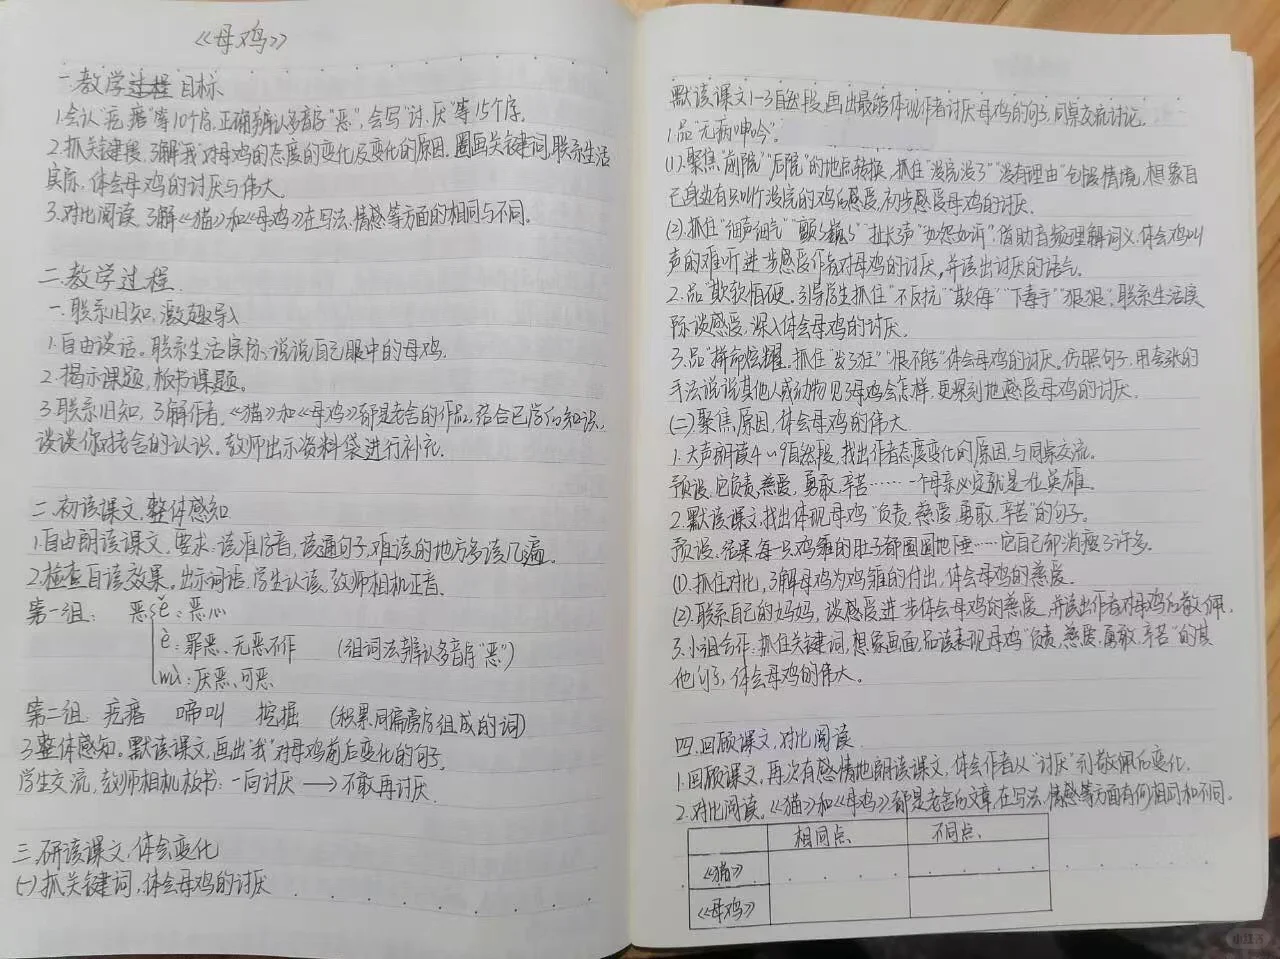 《母鸡》
一.教学过程目标
1.会认“疙瘩”等10个字,正确辨认多音字“恶”,会写“讨、厌”等15个字。
2.抓关键段,了解“我”对母鸡的态度的变化及变化的原因。圈画关键词,联系生活
实际,体会母鸡的讨厌与伟大。
3.对比阅读,了解《猫》和《母鸡》在写法、情感等方面的相同与不同。
二.教学过程
一.联系旧知,激趣导入
1.自由谈话。联系生活实际,说说自己眼中的母鸡。
2.揭示课题,板书课题。
3.联系旧知,了解作者。《猫》和《母鸡》都是老舍的作品,结合已学的知识,
谈谈你对老舍的认识。教师出示资料袋进行补充.
二.初读课文,整体感知
1.自由朗读课文,要求:读准字音,读通句子,难读的地方多读几遍。
2.检查自读效果。出示词语,学生认读,教师相机正音。
第一组: 恶 ě:恶心
è:罪恶、无恶不作 (组词法辨认多音字“恶”)
wù:厌恶、可恶
第二组: 疙瘩 啼叫 挖掘 (积累同偏旁字组成的词)
3.整体感知。默读课文,画出“我”对母鸡前后变化的句子。
学生交流,教师相机板书:一向讨厌 ⟶ 不敢再讨厌.
三.研读课文,体会变化
(一)抓关键词,体会母鸡的讨厌
默读课文1-3自然段,画出最能体现作者讨厌母鸡的句子,同桌交流讨论。
1.品“无病呻吟”:
(1).聚焦“前院”“后院”的地点转换,抓住“没完没了”“没有理由”创设情境,想象自
己身边有只叫个没完的鸡的感受,初步感受母鸡的讨厌.
(2).抓住“细声细气”“颤颤巍巍”“扯长了声”“如怨如诉”,借助音频理解词义,体会鸡叫
声的难听,进一步感受作者对母鸡的讨厌,并读出讨厌的语气。
2.品“欺软怕硬”.引导学生抓住“不反抗”“欺侮”“下毒手”“狠狠”,联系生活实
际谈感受,深入体会母鸡的讨厌.
3.品“拼命炫耀”.抓住“发了狂”“恨不能”体会母鸡的讨厌。仿照句子,用夸张的
手法说说其他人或动物见了母鸡会怎样,更深刻地感受母鸡的讨厌.
(二)聚焦原因,体会母鸡的伟大
1.大声朗读4~9自然段,找出作者态度变化的原因,与同桌交流。
预设:它负责、慈爱、勇敢、辛苦……一个母亲必定就是一位英雄。
2.默读课文,找出体现母鸡“负责、慈爱、勇敢、辛苦”的句子。
预设:结果,每一只鸡雏的肚子都圆圆地下垂……它自己却消瘦了许多.
(1).抓住对比,了解母鸡为鸡雏的付出,体会母鸡的慈爱.
(2).联系自己的妈妈,谈感受,进一步体会母鸡的慈爱,并读出作者对母鸡的敬佩.
3.小组合作:抓住关键词,想象画面,品读表现母鸡“负责、慈爱、勇敢、辛苦”的其
他句子,体会母鸡的伟大。
四.回顾课文,对比阅读
1.回顾课文,再次有感情地朗读课文,体会作者从“讨厌”到敬佩的变化.
2.对比阅读。《猫》和《母鸡》都是老舍的文章,在写法、情感等方面有何相同和不同。
相同点 不同点.
《猫》
《母鸡》